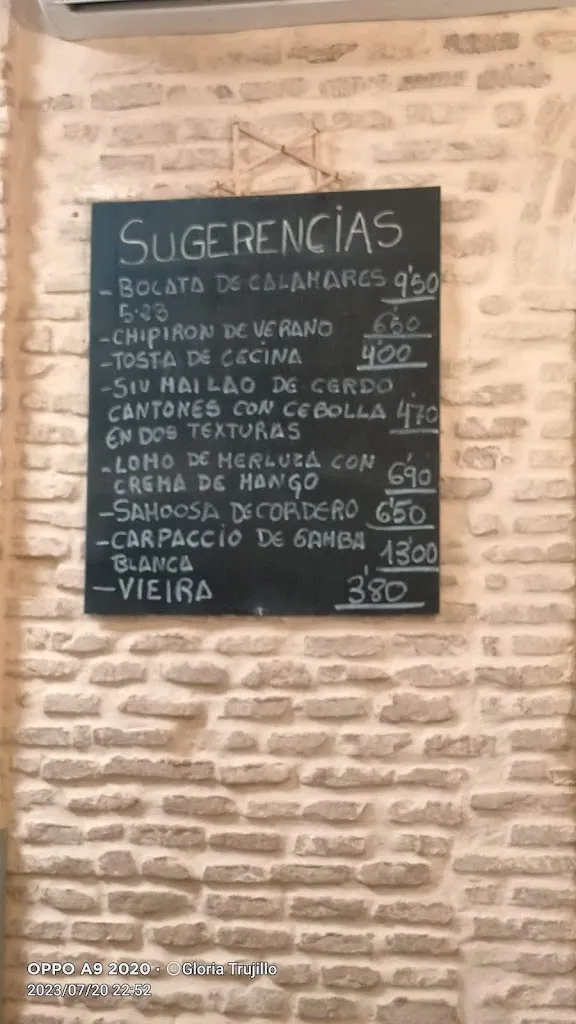 SUGERENCIAS
- BOCATA DE CALAMARES 9'50
5.23
- CHIPIRON DE VERANO 6'50
- TOSTA DE CECINA 4'00
- SIU MAI LAO DE CERDO
CANTONES CON CEBOLLA 4'70
EN DOS TEXTURAS
- LOMO DE MERLUZA CON
CREMA DE MANGO 6'90
- SAMOOSA DE CORDERO 6'50
- CARPACCIO DE GAMBA
BLANCA 13'00
- VIEIRA 3'80
OPPO A9 2020 · ©Gloria Trujillo
2023/07/20 22:52